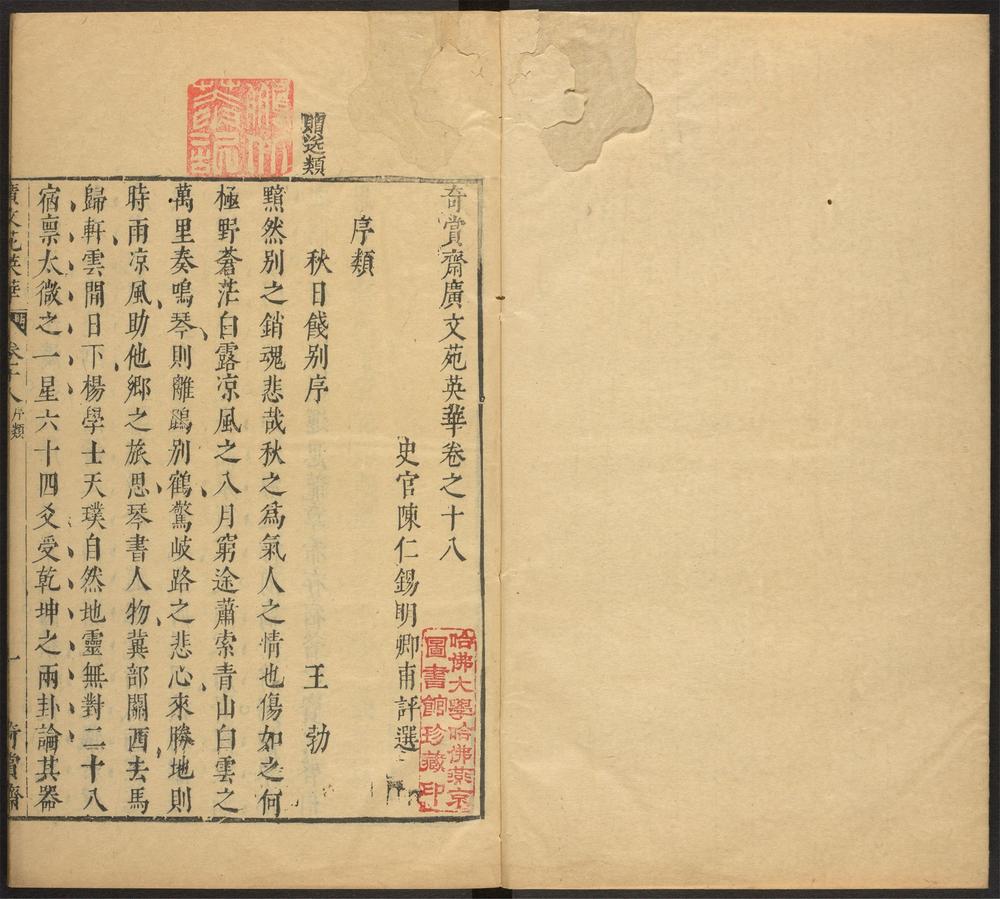 奇賞齋廣文苑英華卷之十八
史官陳仁錫明卿甫評選
序類
秋日餞別序 王勃
黯然別之銷魂悲哉秋之爲氣人之情也傷如之何
極野蒼茫白露凉風之八月窮途蕭索青山白雲之
萬里奏鳴琴則離鵾別鶴驚岐路之悲心來勝地則
時雨凉風助他鄉之旅思琴書人物冀部關西去馬
歸軒雲間日下楊學士天璞自然地靈無對二十八
宿禀太微之一星六十四爻受乾坤之兩卦論其器
贈送類
廣文苑英華 卷十八 序類 一 奇賞齋
哈佛大學哈佛燕京
圖書館珍藏印